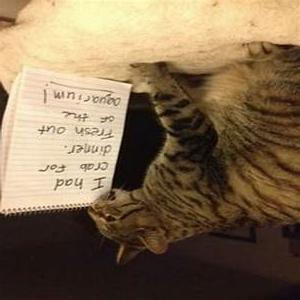 I had
crab for
dinner.
Fresh out
of the
aquarium!